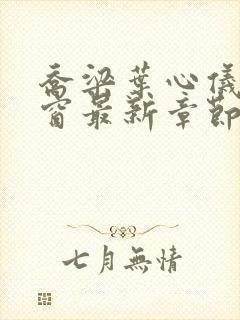 乔梁葉心儀
窗最新章節
七月無情